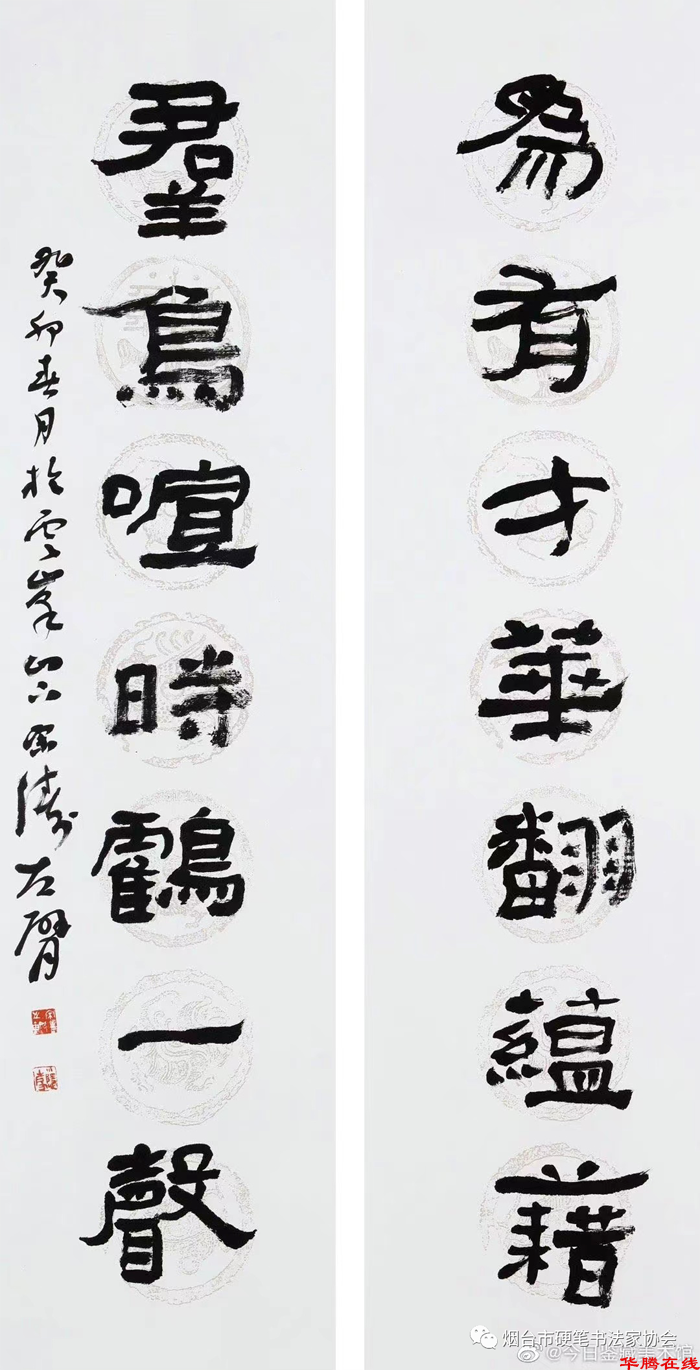 為有才華翻蘊藉
羣鳥喧時鶴一聲
癸卯春月於雲峯山下濤左臂
烟台市硬笔书法家协会
@今日鉴藏美术馆
华腾在线